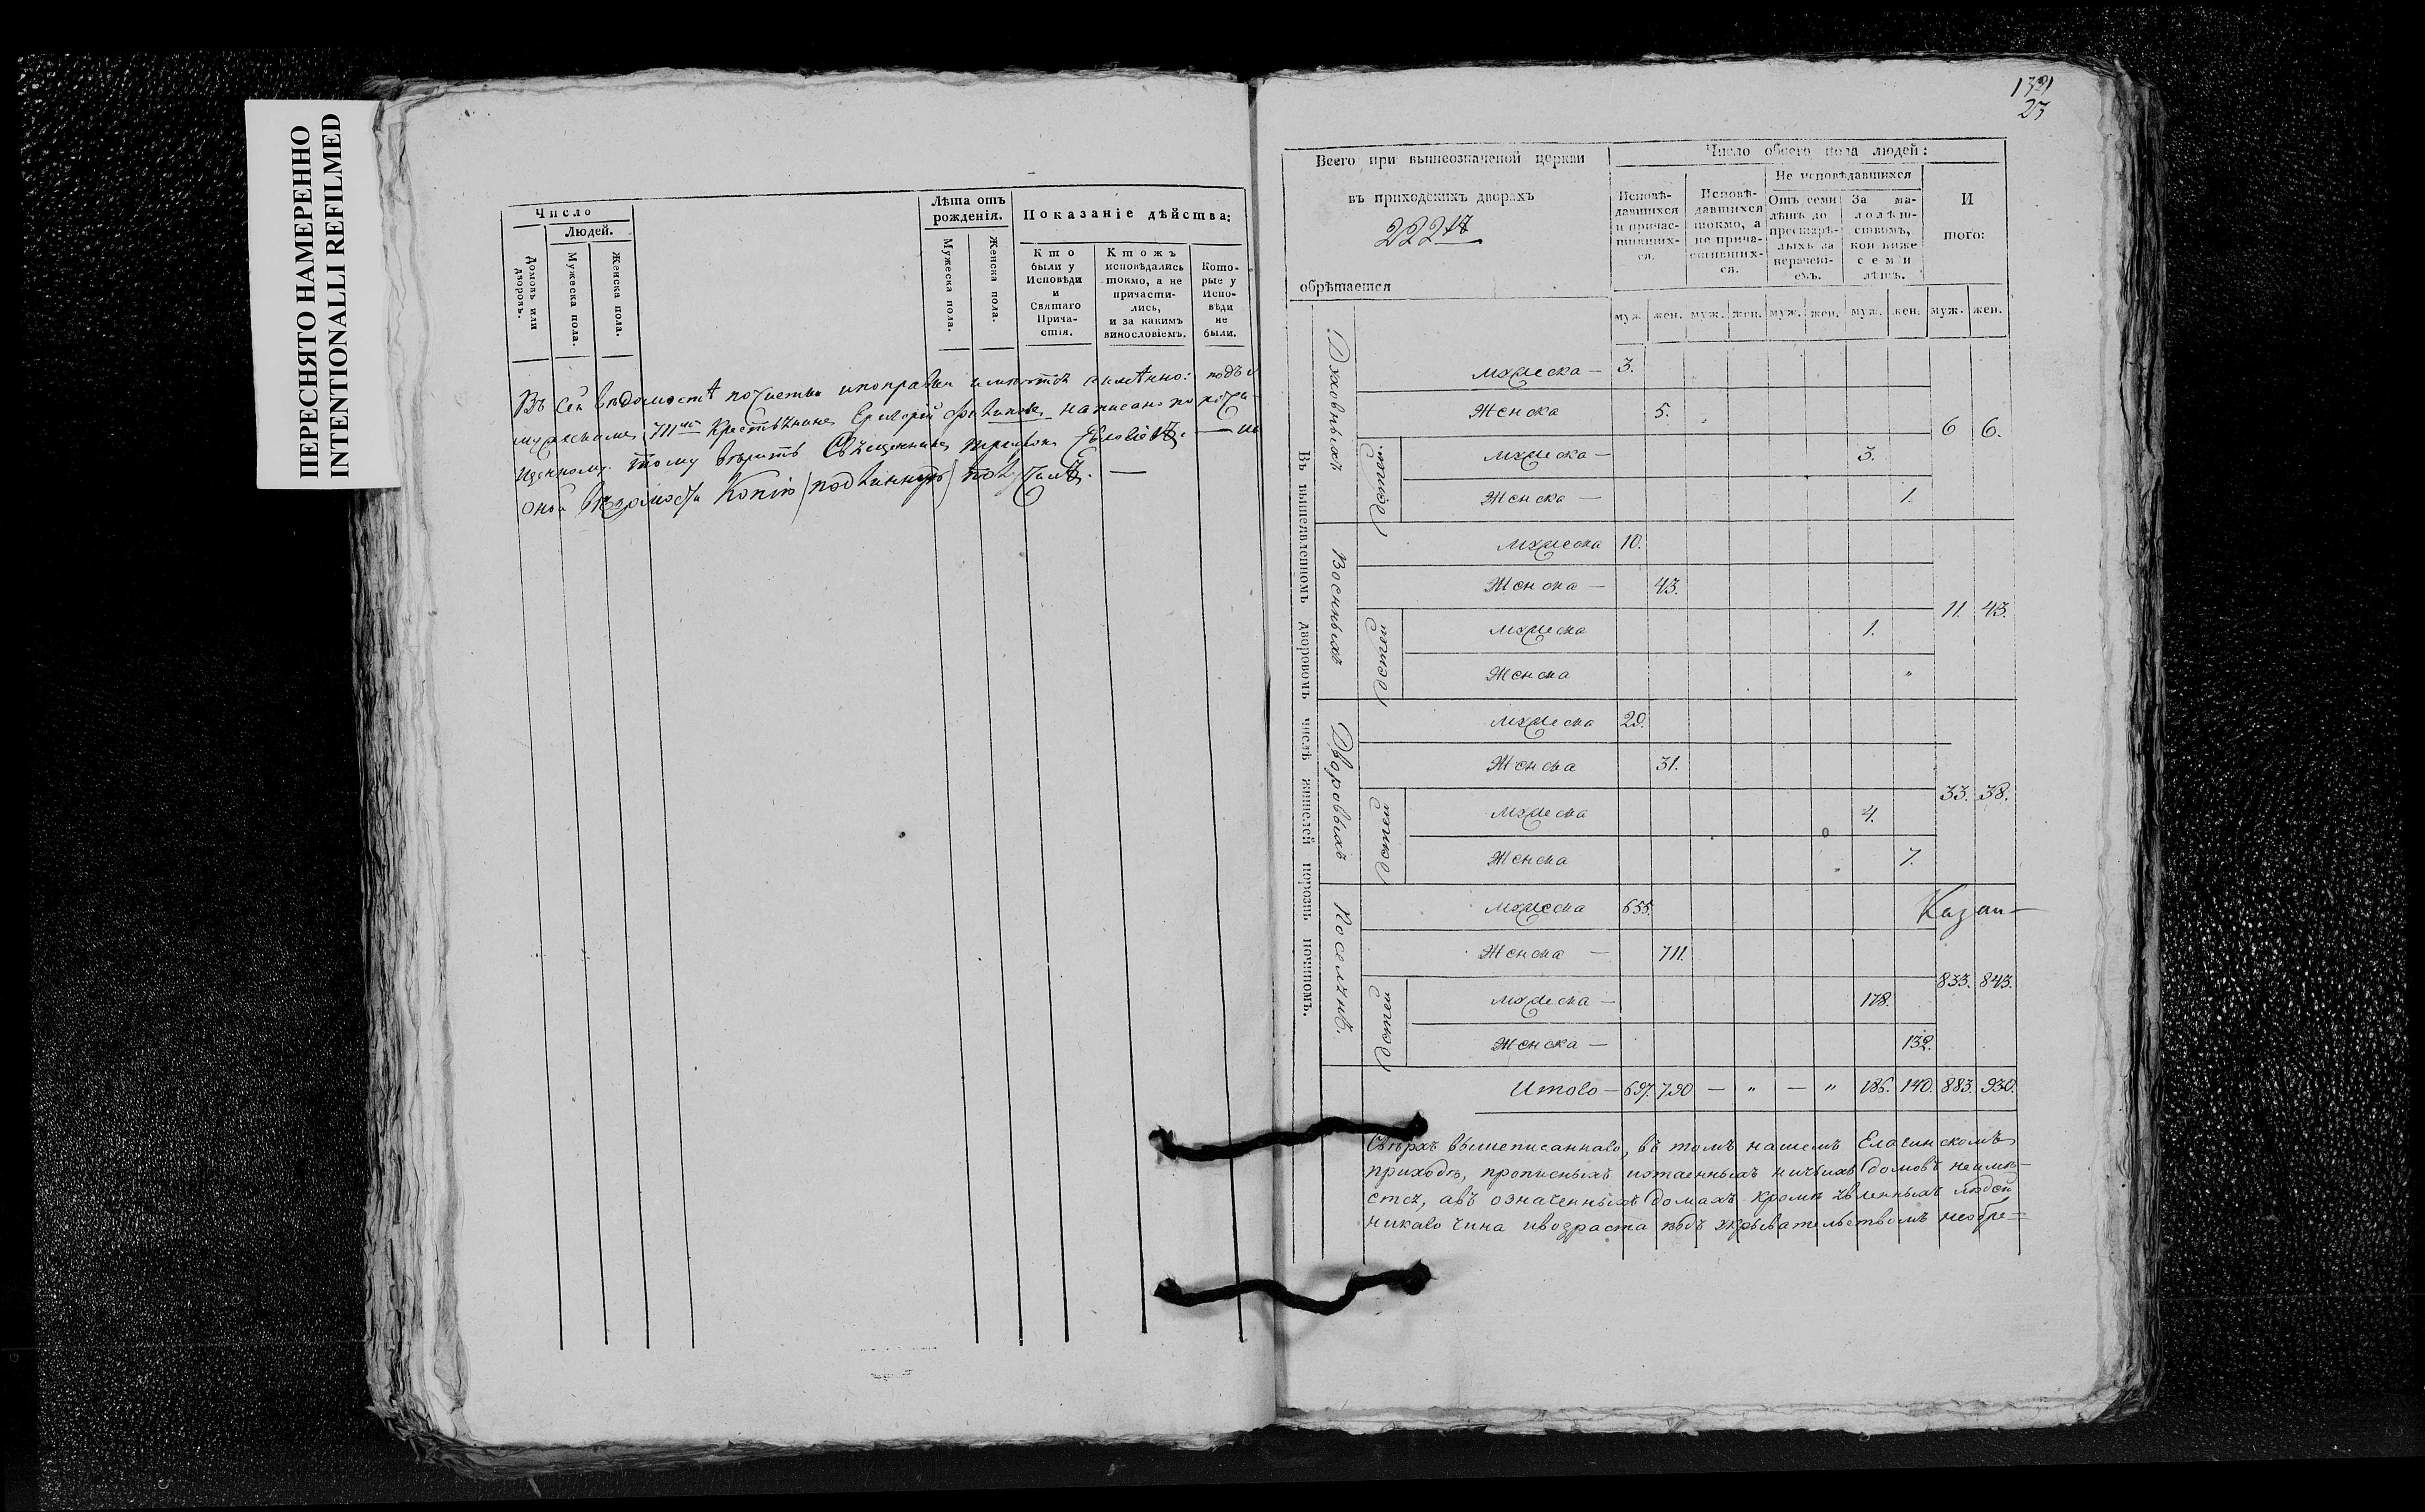 ПЕРЕСНЯТО НАМЕРЕННО
INTENTIONALLI REFILMED
Число
Людей.
Домовъ или дворовъ.
Мужеска пола.
Женска пола.
Лѣта отъ рожденія.
Мужеска пола.
Женска пола.
Показаніе дѣйства:
Кто были у Исповѣди и Святаго Причастія.
Ктожъ исповѣдались токмо, а не причастились, и за какимъ винословіемъ.
Которые у Исповѣди не были.
Въ сей вѣдомостѣ почистки и поправки имѣются а имѣнно: подъ
711мъ Григорей написано по
тому вѣритъ Священникъ
оной Вѣдомости Копію (подлинную)
1321
23
Всего при вышеозначеной церкви
въ приходскихъ дворахъ
222
обрѣтается
Число обоего пола людей:
Исповѣдавшихся и причастившихся.
Исповѣдавшихся токмо, а не причастившихся.
Не исповѣдавшихся
Отъ семи лѣтъ до престарѣлыхъ за нераченіемъ.
За малолѣтствомъ, кои ниже семи лѣтъ.
И того:
муж. жен. муж. жен. муж. жен. муж. жен. муж. жен.
Въ вышеявленномъ дворовомъ числѣ жителей порознь почином.
Духовныхъ
Мужеска — 3.
Женска 5.
6 6.
детей.
Мужеска — 3.
Женска — 1.
Военныхъ
Мужеска 10.
Женска — 43.
11. 43.
детей
Мужеска 1.
Женска "
Дворовыхъ
Мужеска 29.
Женска 31.
33. 38.
детей
Мужеска 4.
Женска 7.
Поселянъ.
Мужеска 655.
Казан—
Женска — 711.
833. 843.
детей
Мужеска — 178.
Женска — 132.
Итого — 697. 790 — " — " 186. 140. 883. 930.
Сверхъ вышеписаннаго, въ томъ нашемъ Еласинскомъ
приходѣ, прописныхъ иутаенныхъ ничьихъ домовъ неимѣ-
ется, авъ означенныхъ домахъ кромѣ явленныхъ людей
никаго чина ивозраста подъ укрывательствомъ необре=